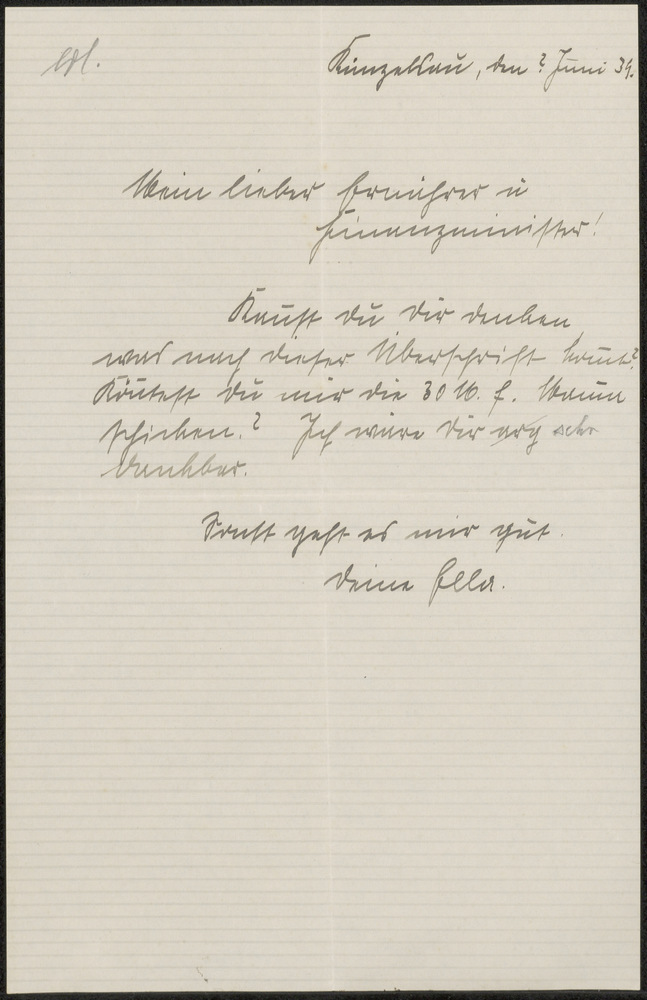 erl.
Künzelsau, den ? Juni 39.
Mein lieber Ernährer u
Finanzminister!
Kannst Du Dir denken,
was nach dieser Überschrift kom̄t?
Kön̄test Du mir die 30 M. f.
schicken? Ich wäre Dir arg sehr
dankbar.
Sonst geht es mir gut.
Deine Ella.